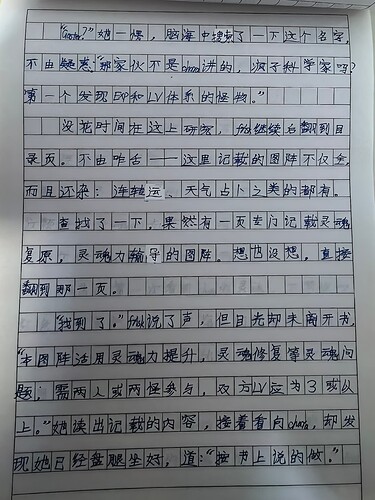 "Gaster?"她一愣，脑海中搜索了一下这个名字，
不由疑惑："那家伙不是chara讲的，疯子科学家吗？
第一个发现EXP和LV体系的怪物。"
没花时间在这上研究，frisk继续翻到目
录页。不由咋舌——这里记载的图阵不仅多，
而且还杂：连转运、天气占卜之类的都有。
查找了一下，果然有一页专门记载灵魂
复原，灵魂力输导的图阵。想也没想，直接
翻到那一页。
"找到了。"frisk说了声，但目光却未离开书，
"本图阵适用灵魂力提升，灵魂修复等灵魂问
题，需两人或两怪参与，双方LV应为3或以
上。"她读出记载的内容，接着看向chara，却发
现她已经盘腿坐好，道："按书上说的做。"